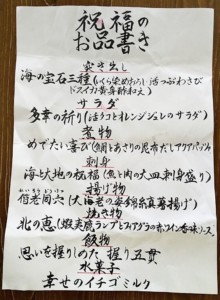 祝福の
お品書き
突き出し
海の宝石三種(いくら染めおろし 活つぶわさび
ドスイカ黄身酢和え)
サラダ
多幸の祈り(活タコとオレンジジュレのサラダ)
煮物
めでたい喜び(鯛とあさりの昆布だしアクアパッツァ)
刺身
海と大地の祝福(魚と肉の大皿刺身盛り)
揚げ物
偕老同穴(大海老の姿錦糸真薯揚げ)
かいろうどうけつ
焼き物
北の恵(蝦夷鹿ランプとフォアグラの赤ワイン香味ソース)
飯物
思いを握りしめた、握り五貫
水菓子
幸せのイチゴミルク